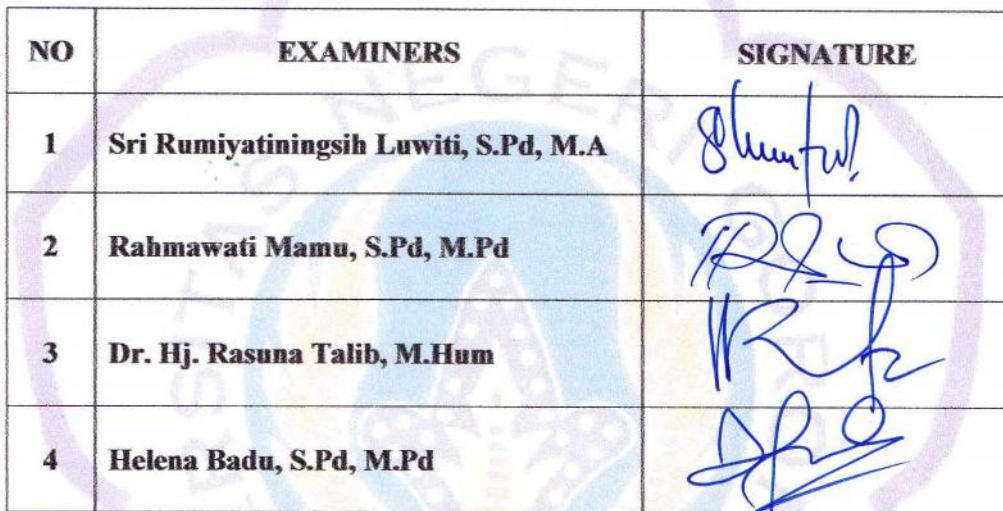 NO EXAMINERS SIGNATURE
1 Sri Rumiyatiningsih Luwiti, S.Pd, M.A
2 Rahmawati Mamu, S.Pd, M.Pd
3 Dr. Hj. Rasuna Talib, M.Hum
4 Helena Badu, S.Pd, M.Pd